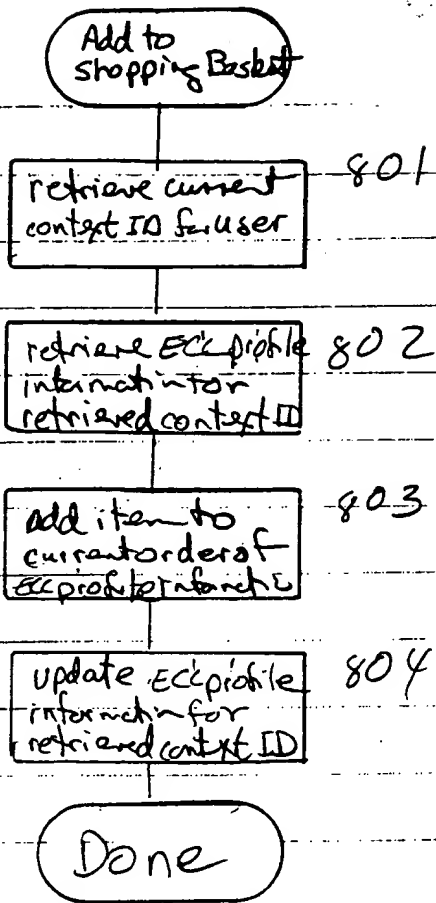 Add to
Shopping Basket
801
retrieve current
context ID for user
802
retrieve ECC profile
information for
retrieved context ID
803
add item to
current order of
ECC profile informatio
804
update ECC profile
information for
retrieved context ID
Done